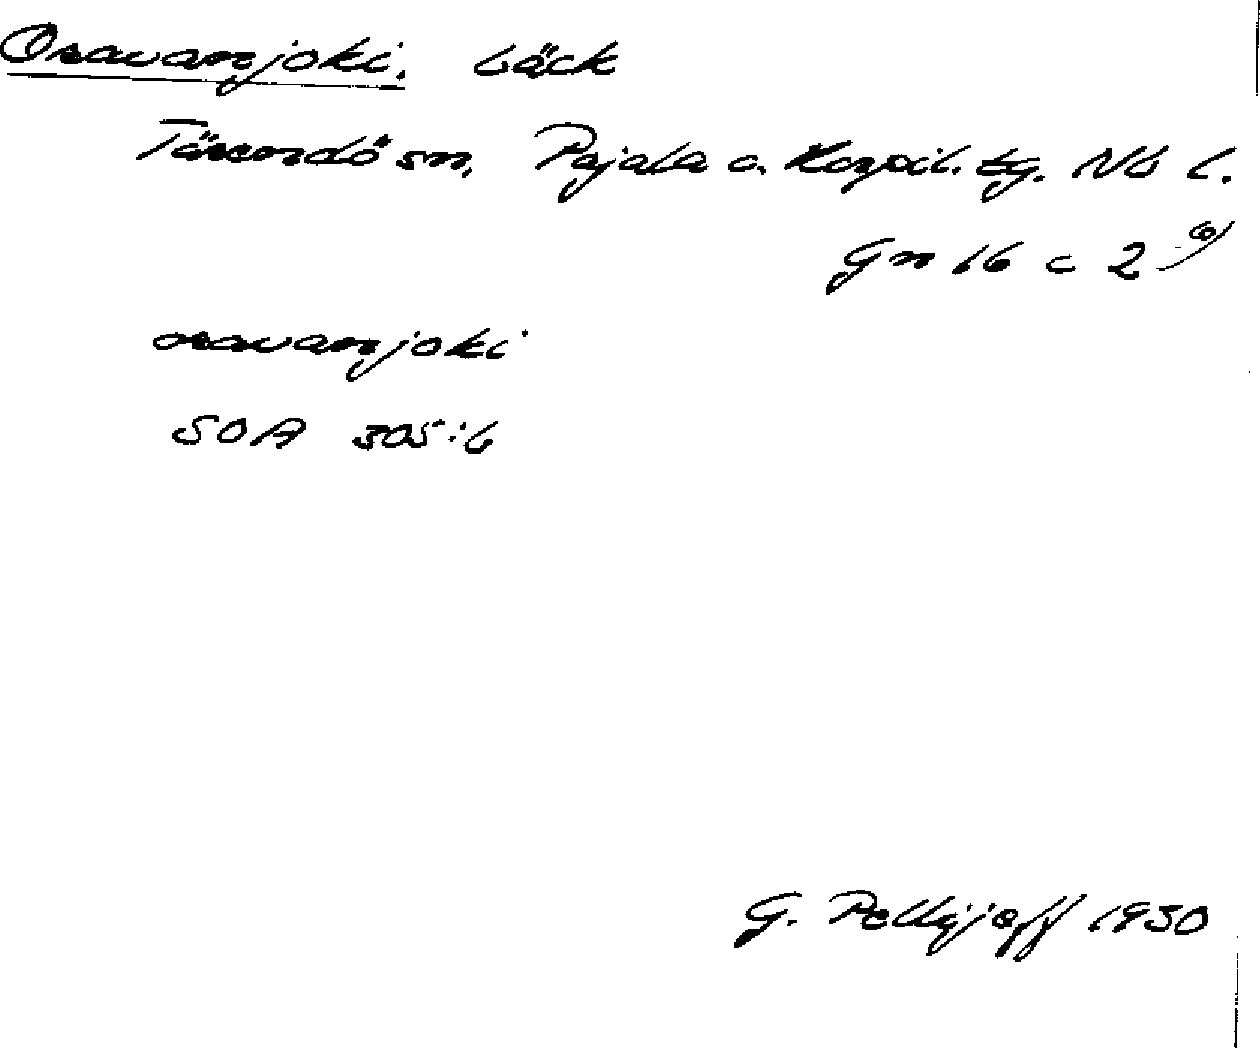 Oravanjoki. bäck
Tärendö sn. Pajala o. Korpil. tg. Nb l.
Gn 16 c 2
oravanjoki
SOA 305:6
G. Pellijeff 1950